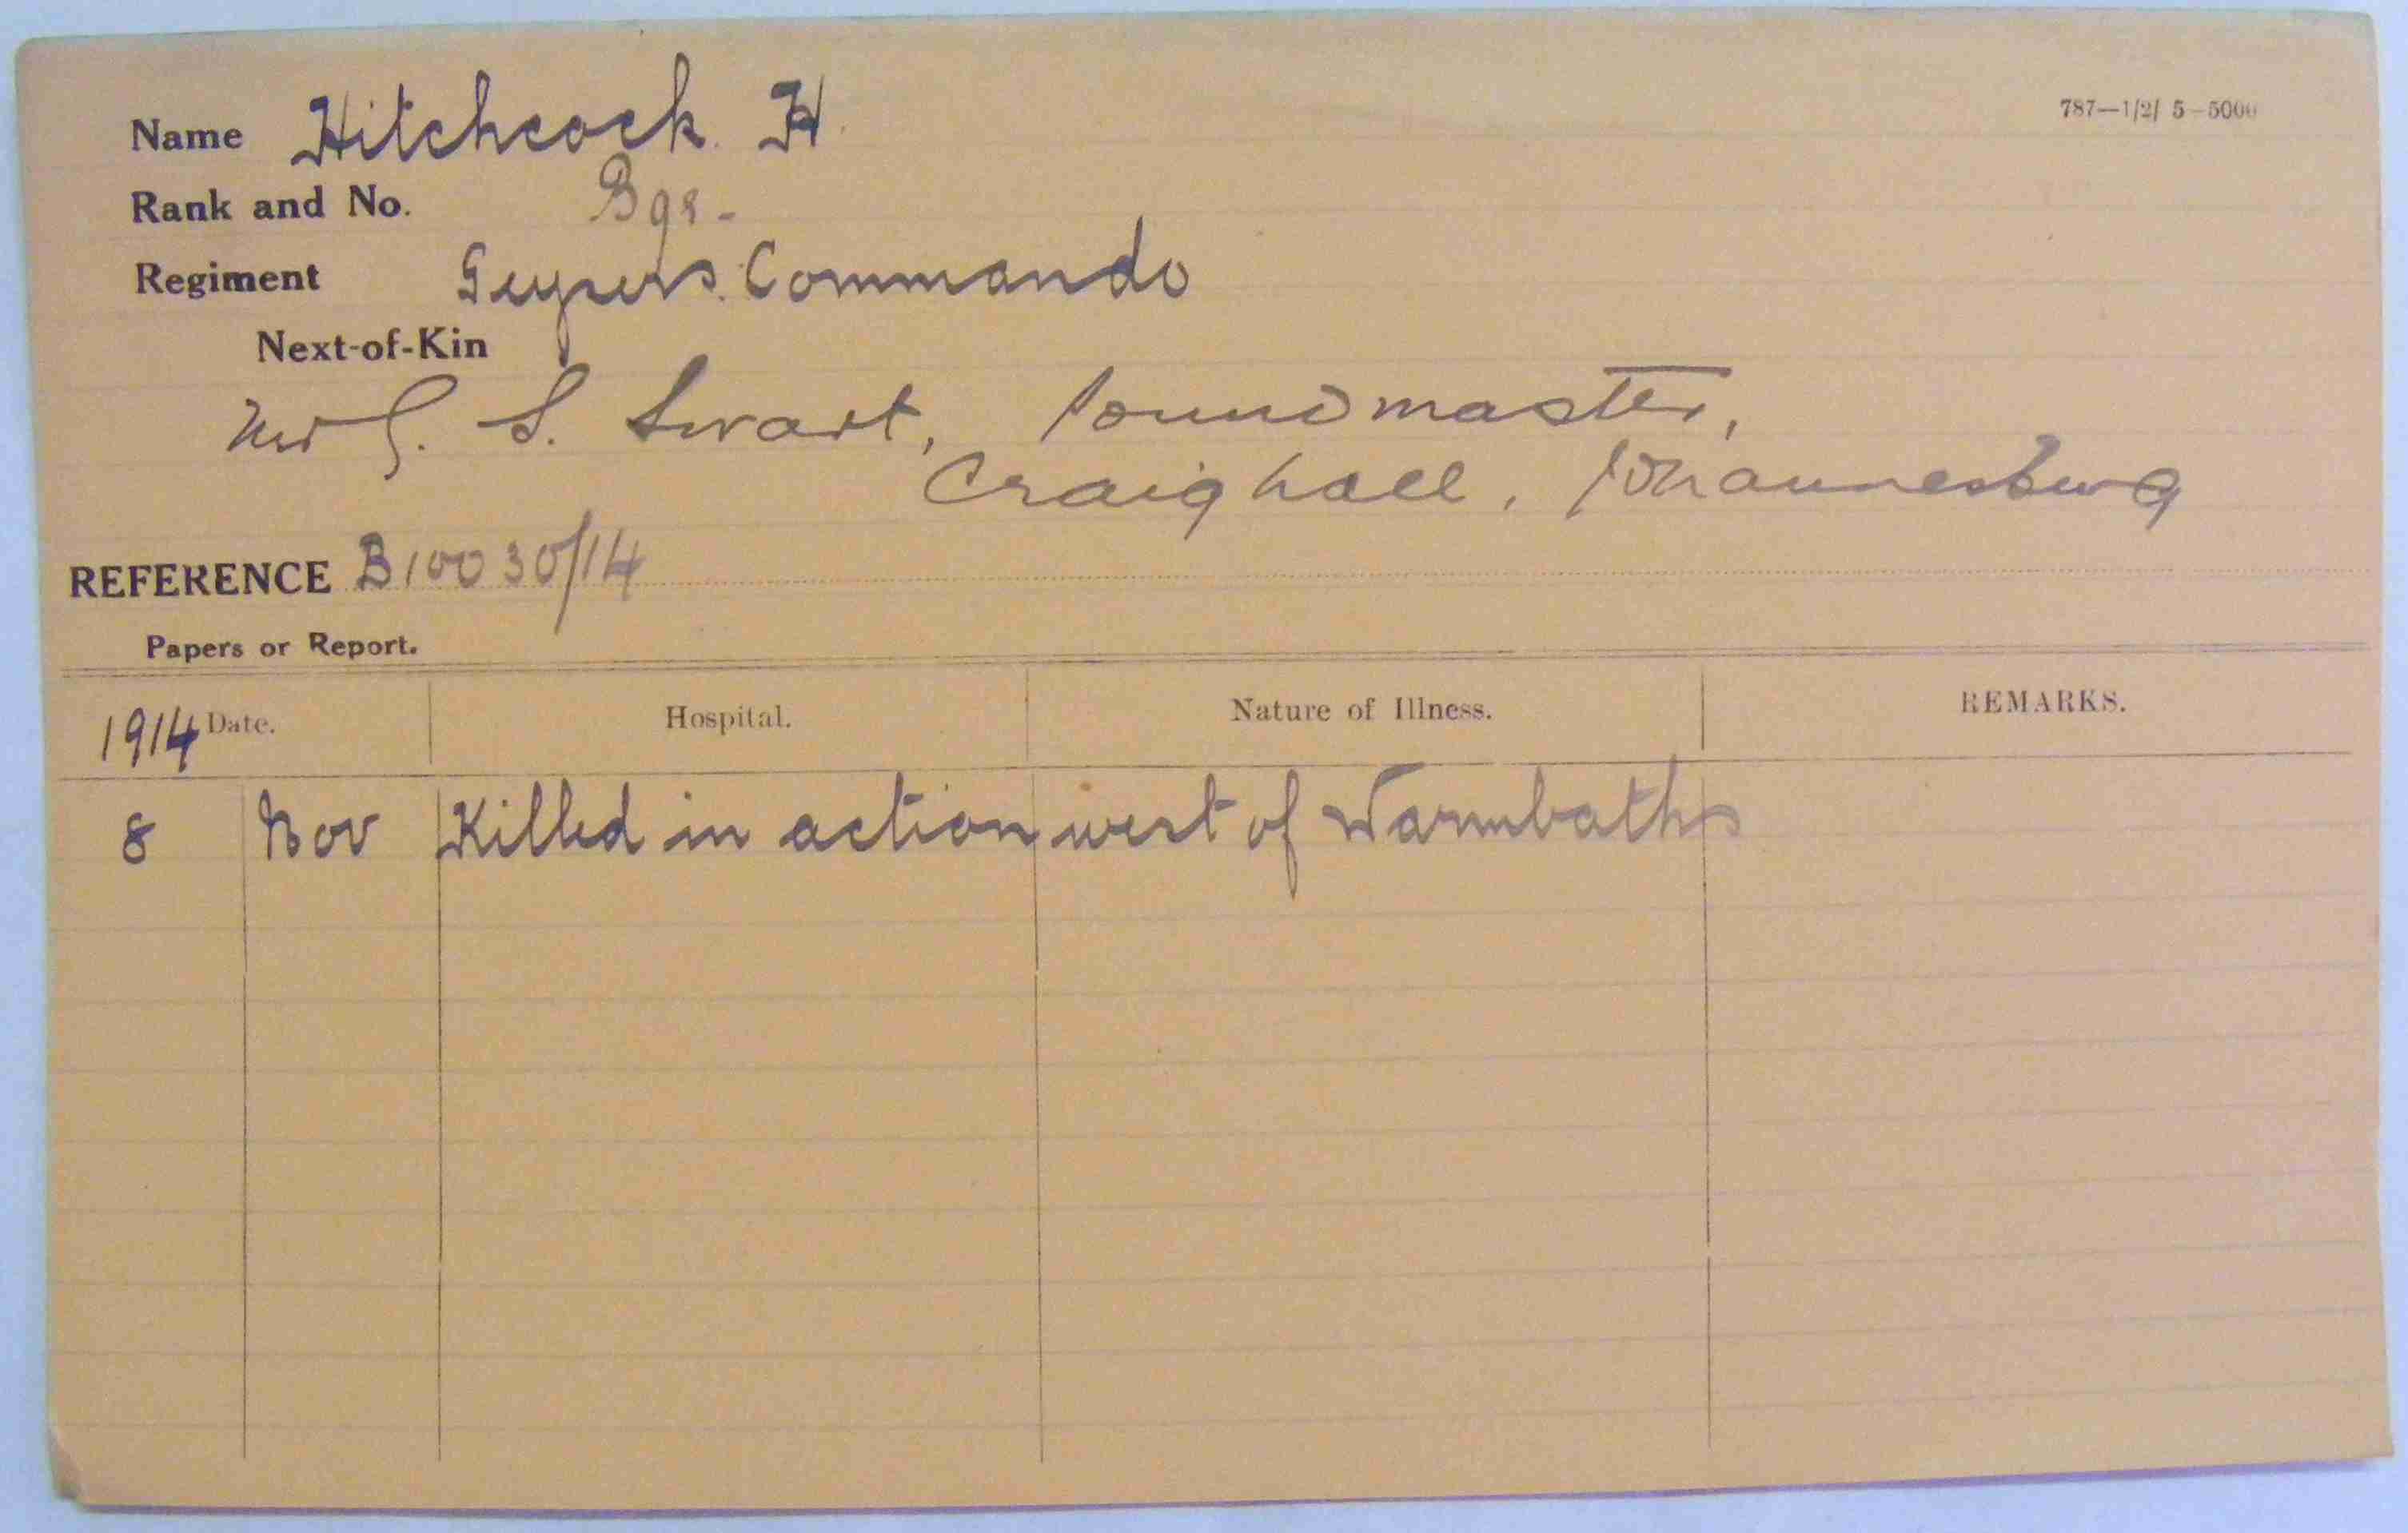 787—1/2/ 5—5000
Name Hitchcock. H.
Rank and No. Bgr.
Regiment Geysers Commando
Next-of-Kin
Mr G. S. Swart, Poundmaster,
Craighall, Johannesburg
REFERENCE B10030/14
Papers or Report.
1914 Date. Hospital. Nature of Illness. REMARKS.
8 Nov Killed in action west of Warmbaths